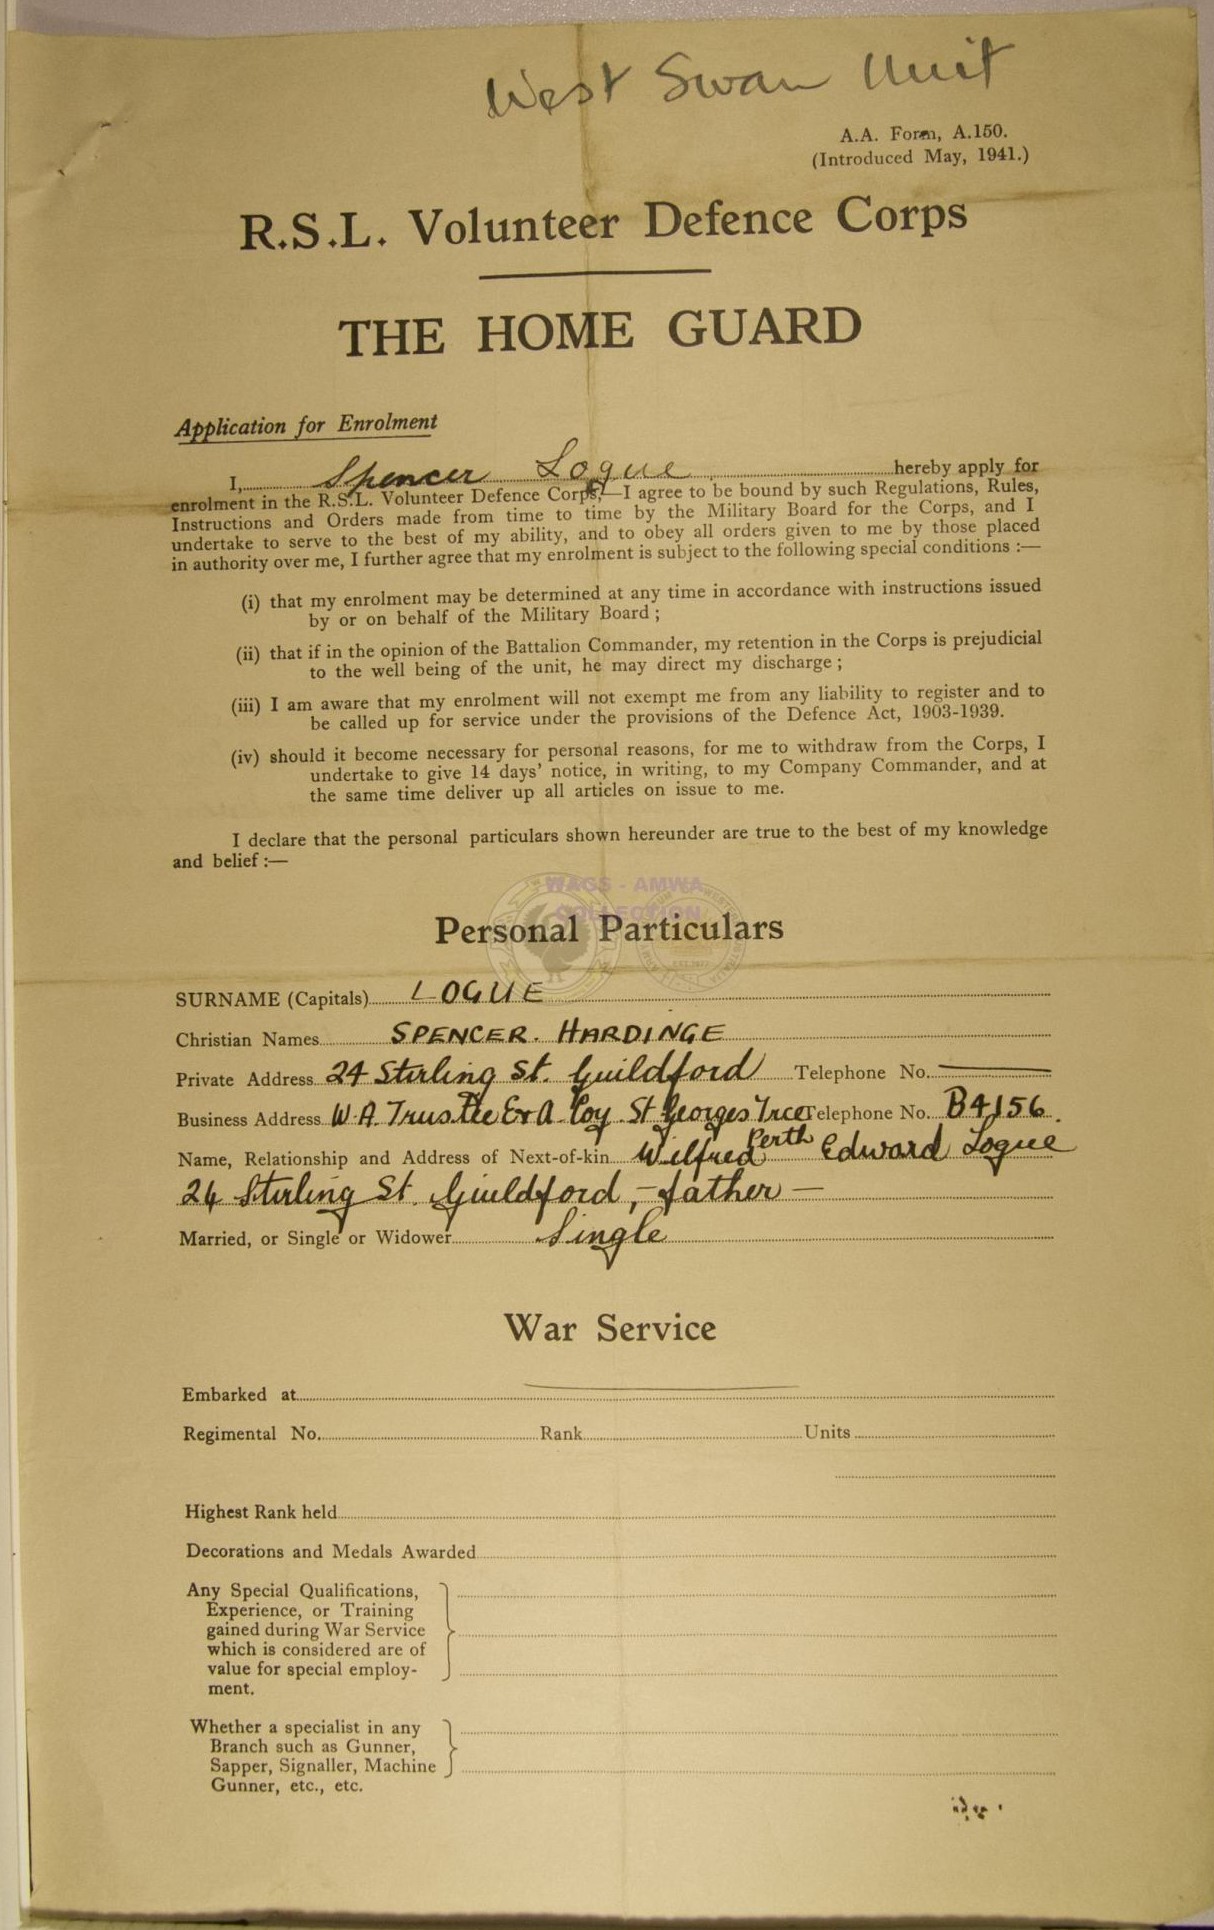 West Swan Unit
A.A. Form, A.150.
(Introduced May, 1941.)
R.S.L. Volunteer Defence Corps
THE HOME GUARD
Application for Enrolment
I, Spencer Logue hereby apply for
enrolment in the R.S.L. Volunteer Defence Corps,—I agree to be bound by such Regulations, Rules,
Instructions and Orders made from time to time by the Military Board for the Corps, and I
undertake to serve to the best of my ability, and to obey all orders given to me by those placed
in authority over me, I further agree that my enrolment is subject to the following special conditions :—
(i) that my enrolment may be determined at any time in accordance with instructions issued
by or on behalf of the Military Board ;
(ii) that if in the opinion of the Battalion Commander, my retention in the Corps is prejudicial
to the well being of the unit, he may direct my discharge ;
(iii) I am aware that my enrolment will not exempt me from any liability to register and to
be called up for service under the provisions of the Defence Act, 1903-1939.
(iv) should it become necessary for personal reasons, for me to withdraw from the Corps, I
undertake to give 14 days' notice, in writing, to my Company Commander, and at
the same time deliver up all articles on issue to me.
I declare that the personal particulars shown hereunder are true to the best of my knowledge
and belief :—
WAGS - AMWA
COLLECTION
Personal Particulars
SURNAME (Capitals) LOGUE
Christian Names SPENCER. HARDINGE
Private Address 24 Stirling St. Guildford Telephone No. —
Business Address W.A. Trustee E & A Coy St Georges Trce Telephone No. B4156.
Perth
Name, Relationship and Address of Next-of-kin Wilfred Edward Logue
24 Stirling St. Guildford, - father -
Married, or Single or Widower Single
War Service
Embarked at
Regimental No. Rank Units
Highest Rank held
Decorations and Medals Awarded
Any Special Qualifications,
Experience, or Training
gained during War Service
which is considered are of
value for special employ-
ment.
Whether a specialist in any
Branch such as Gunner,
Sapper, Signaller, Machine
Gunner, etc., etc.